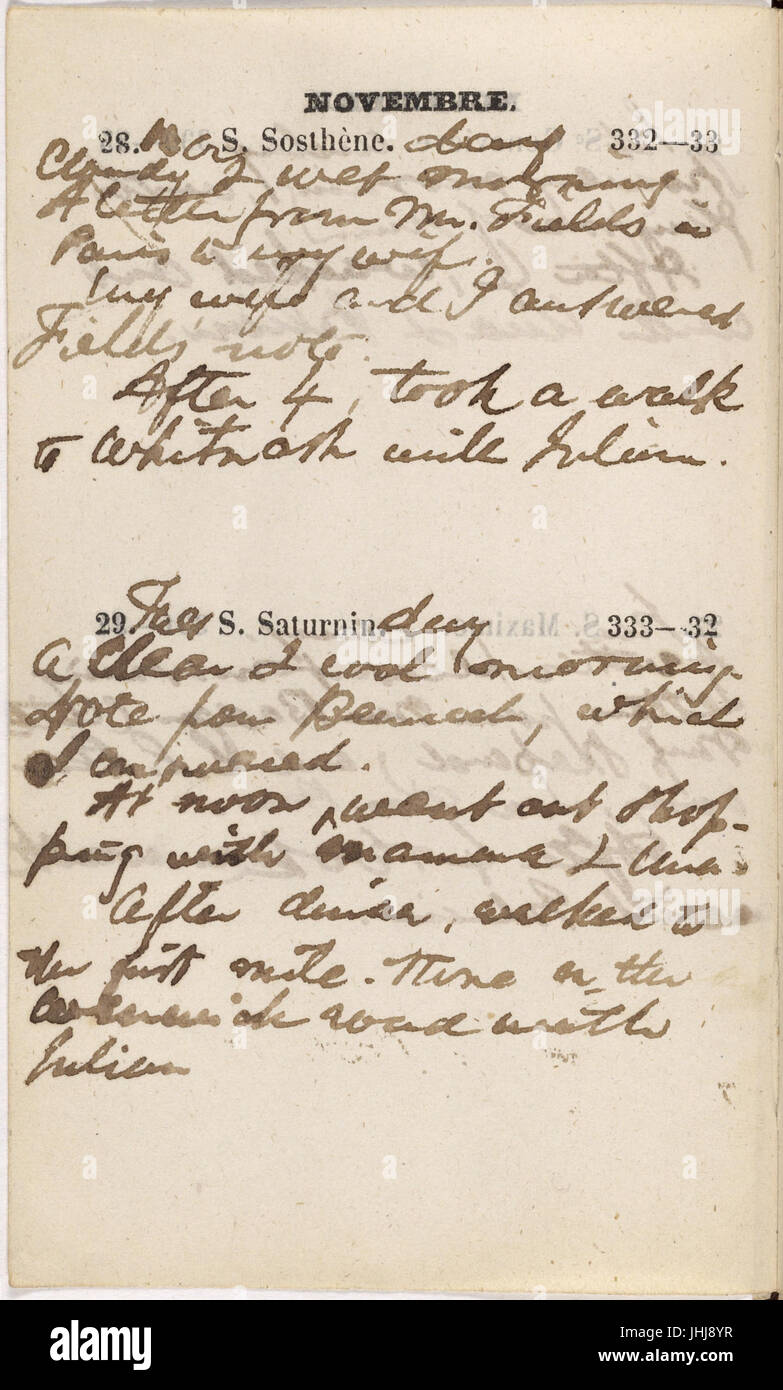 NOVEMBRE.
28. Mon S. Sosthène. day 332—33
Cloudy & wet morning
A letter from Mr. Fields in
Paris to my wife.
My wife and I answered
Fields' note.
After 4, took a walk
to Whitnash with Julian.
29. Tues S. Saturnin. day 333—32
A clear & cool morning.
Note from Bennoch, which
I answered.
At noon, went out shop-
ping with mamma & Una.
After dinner, walked to
the first mile-stone on the
Warwick road with
Julian
alamy
Image ID: JHJ8YR
www.alamy.com